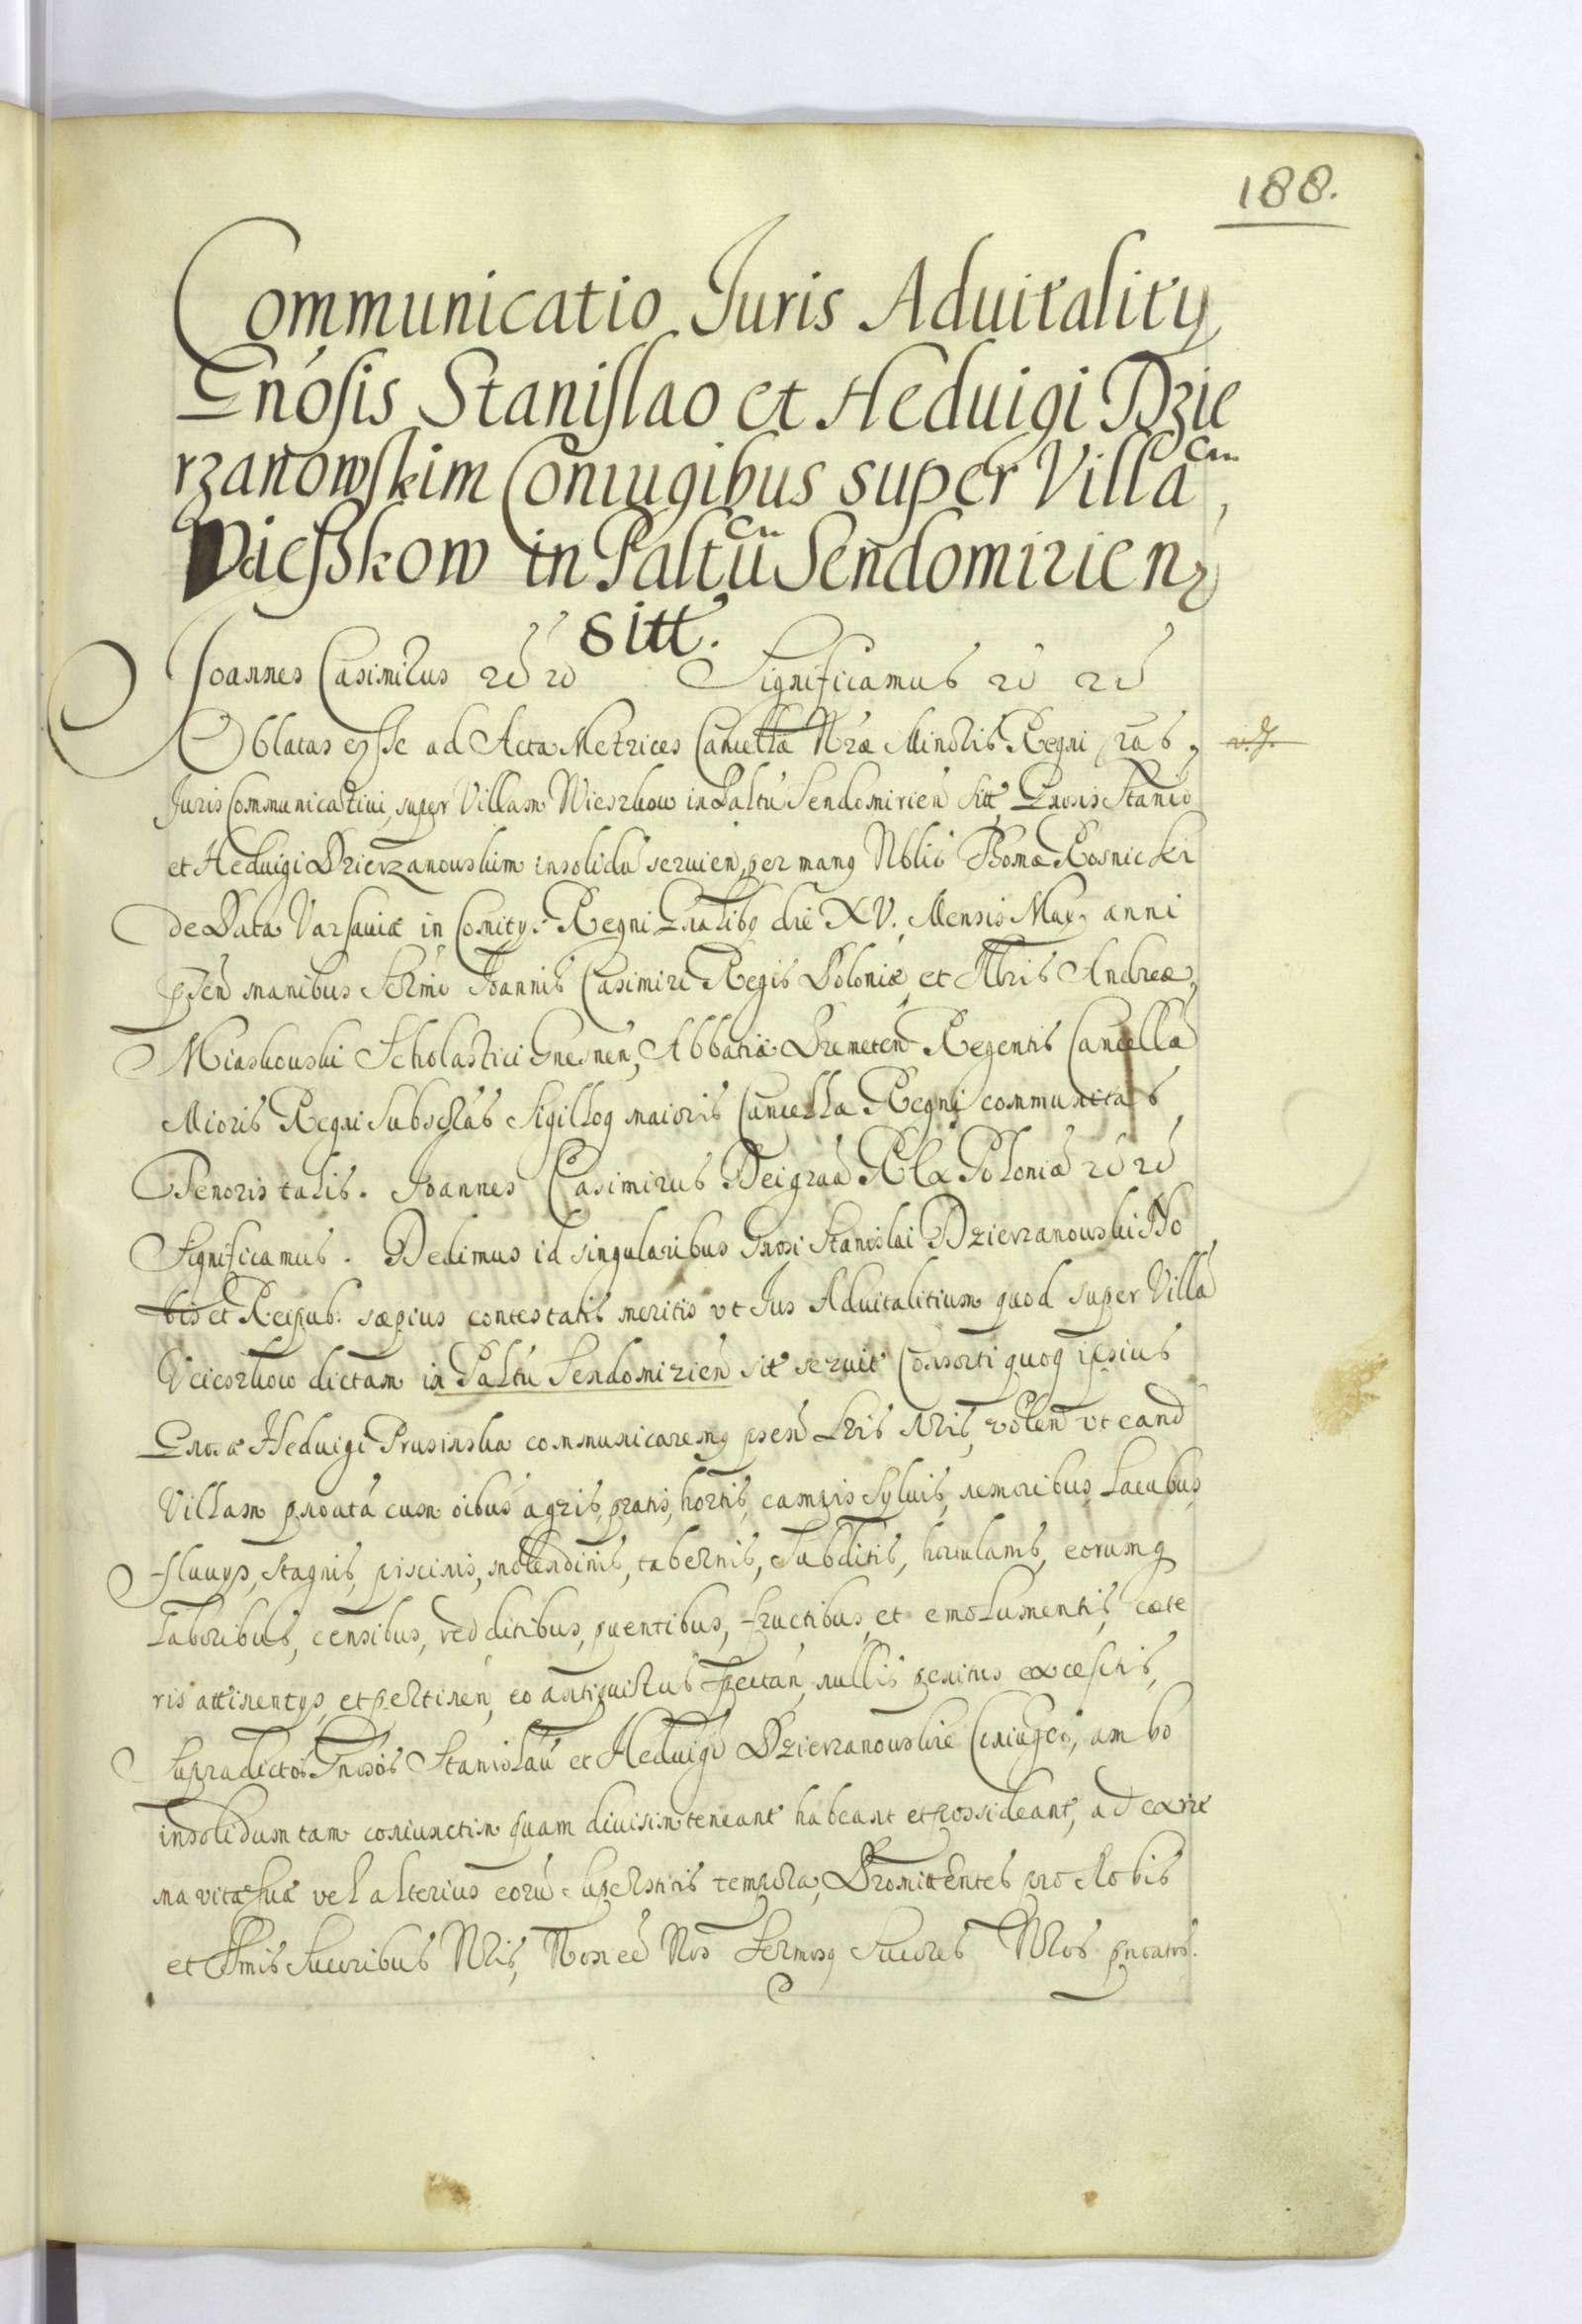 188.
Communicatio Juris Aduitality
Gnósis Stanislao et Heduigi Dzie
rzanowskim Coniugibus super Villa em
Wiesskow in Paltu Sendomirien
sitt.
Joannes Casimirus Significamus
Oblatas esse ad Acta Metrices Cancellae Nrae Minoris Regni
Juris Communicatiui, super Villam Wieszkow in Paltu Sendomirien sitt, Gnosis Stanio
et Heduigi Dzierzanowskim insolidu seruien, per manq Nblis Thomae Rosnicki
de Data Varsauiae in Comitys Regni Gnalibq die XV. Mensis May anni
psen manibus Sermi Joannis Casimiri Regis Poloniae, et Andreae
Miaskouski Scholastici Gnesnen, Abbatis Premeten Regentis Cancella
Mioris Regni Subscras Sigilloq maioris Cancellae Regni communitas
Tenoris talis. Joannes Casimirus Dei graa Rex Poloniae
Significamus. Dedimus id singularibus Gnosi Stanislai Dzierzanowski No
bis et Reipub: saepius contestatis meritis vt Jus Aduitalitium quod super Villa
Wieszkow dictam in Paltu Sendomirien sit seruit Consorti quoq ipsius
Gnosae Heduigi Prusinska communicaremq psen Lris Nris, volen vt eand
Villam pnoata cum oibus agris, pratis, hortis, campis Syluis, nemoribus, Lacubus,
fluuys, Stagnis, piscinis, molendinis, tabernis, Subditis, hortulanis, eorumq
Laboribus, censibus, redditibus, puentibus, fructibus, et emolumentis, caete
ris attinentys, et pertinen, eo antiquitus spectan, nullis penitus exceptis,
supradictos Gnosos Stanislau et Heduige Dzierzanowskie Coniuges, ambo
insolidum tam coniunctim quam diuisim teneant habeant et possideant, ad extre
ma vitae suae vel alterius eoru superstitis tempora, Promittentes pro Nobis
et Smis Succribus Nris, Non ee Nos Sermosq Succres Nros pnoatos.